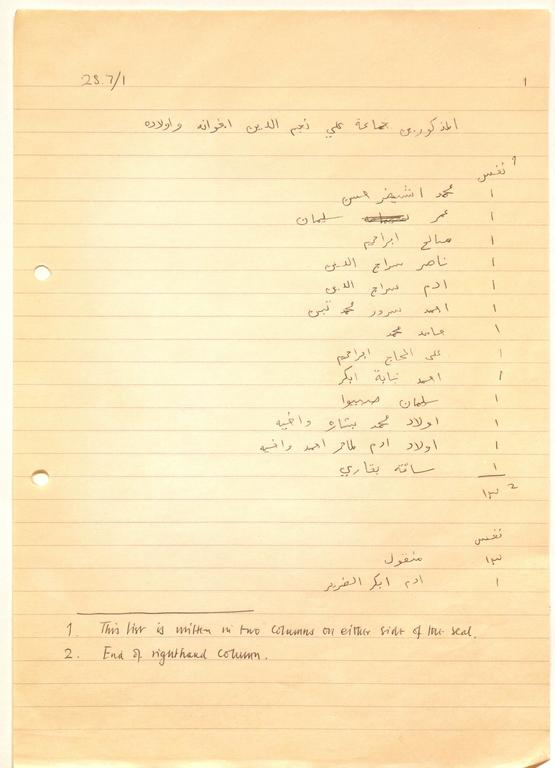 28.7/1
1
المذكورين جماعة علي نجم الدين اخوانه واولاده
نفس 1
١ محمد الشيخ حسن
١ عمر سليمان
١ صالح ابراهيم
١ ناصر سراج الدين
١ ادم سراج الدين
١ احمد سرور محمد
١ حامد محمد
١ على الحاج ابراهيم
١ احمد ابكر
١ سلمان
١ اولاد محمد بشاره واخيه
١ اولاد ادم طاهر احمد واخيه
١ بقاري
١٣ 2
نفس
١٣ منقول
١ ادم ابكر الضرير
1. This list is written in two columns on either side of the seal.
2. End of righthand column.